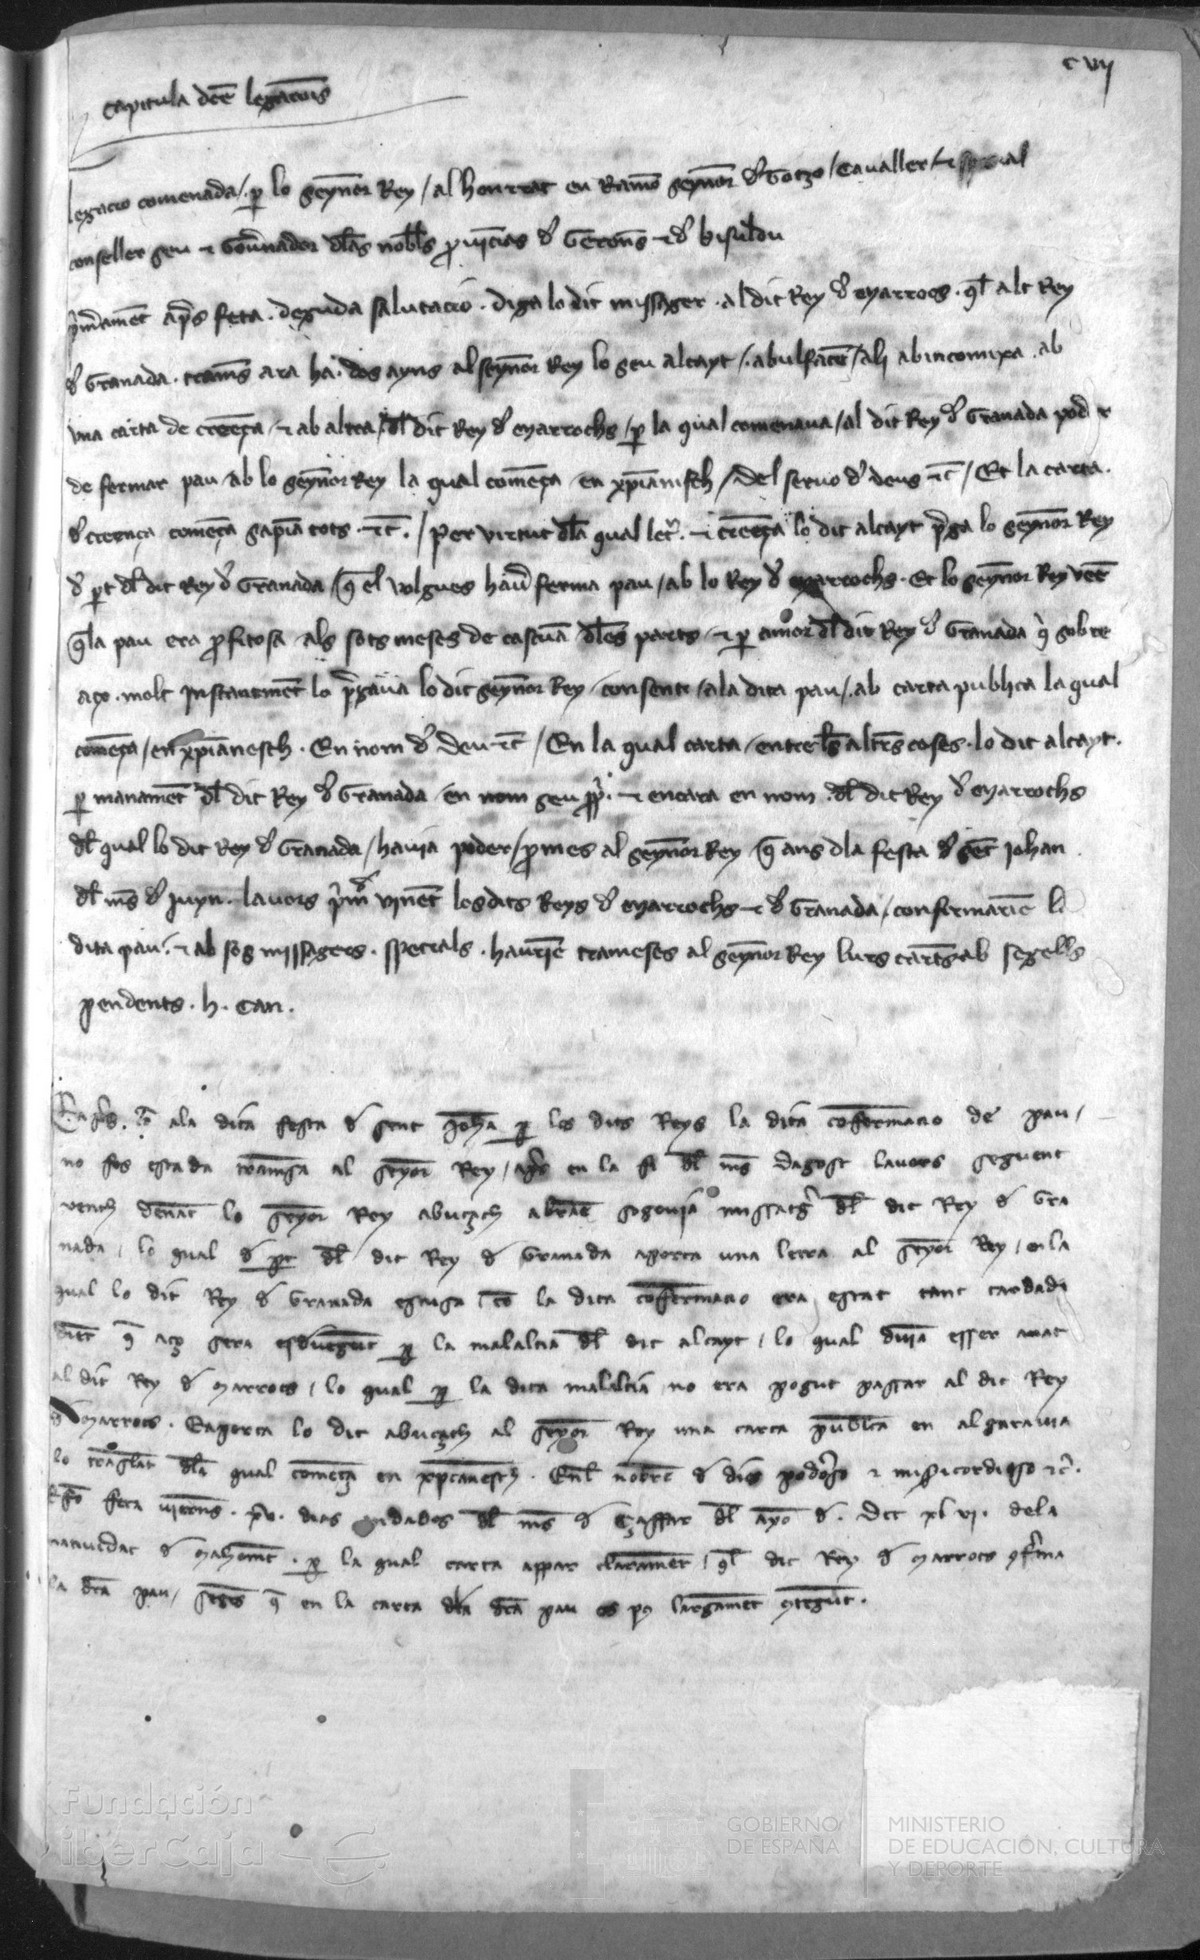 C vij
Capitula dce legacois
legacio comenada / p lo Seynor Rey / al honrrat en Ramo Seynor d Gotzo / Cavaller / τ special
conseller seu τ Governador dles nobles provincias d Gerona τ d bisuldu
primerament apres feta . deguda salutacio . diga lo dit missager . al dit Rey d Marrocs . quel alt Rey
d Granada . trames ara ha . dos ayns al Seynor Rey lo seu alcayt / . abulfacen / ali abincomixa . ab
una carta de creença . τ ab altra / del dit Rey d Marrochs / p la qual comenava / al dit Rey d Granada poder
de fermar pau ab lo Seynor Rey la qual comença en xpianisch / Del servo d deus τc / Et la carta .
d creença comença Sapian tots . τc . / Per virtut dla qual letra . τ creença lo dit alcayt prega lo Seynor Rey
d part del dit Rey d Granada / que el volgues haver ferma pau / ab lo Rey d Marrochs . Et lo Seynor Rey veent
que la pau era profitosa als sots meses de cascuna dles parts τ p amor del dit Rey d Granada qui sobre
aço . molt instantment lo pregava lo dit Seynor Rey consenti / a la dita pau / . ab carta publica la qual
comença / en xpianesch . En nom d Deu τc / En la qual carta / entre les altres coses . lo dit alcayt .
p manament del dit Rey d Granada en nom seu ppi . τ encara en nom . del dit Rey d Marrochs
del qual lo dit Rey d Granada / havia poder / promes al Seynor Rey que ans dla festa d Sent Johan .
del mes d juyn . lavors primer vinent los dits Reys d Marrochs τ d Granada / confermarien la
dita pau . τ ab sos missagers . specials . haurien trameses al Seynor Rey lurs cartes ab segells
pendents . h . Can .
E apres . com ala dita festa d sent Joha p les dits Reys la dita cofermacio de pau /
no fos estada tramesa al Seyor Rey / apres en la fi del mes dagost lavors seguent
vench denant lo Seyor Rey abutzach abrae segovia missatger del dit Rey d Gra
nada / lo qual d part del dit Rey d Granada aporta una letra al Seyor Rey / en la
qual lo dit Rey d Granada escusa com la dita cofermacio era estat tant tardadi
dient que aço sera esdvengut p la malaltia del dit alcayt / lo qual dvia esser anat
al dit Rey d Marrocs / lo qual p la dita malaltia no era pogut passar al dit Rey
d Marrocs . E aporta lo dit abutzach al Seyor Rey una carta publica en algaravia
lo traslat dla qual comença en xpianesch . En l nobre d dios podoroso τ misericordioso τc .
E fo feta viernes . xv . dias andados del mes d çaffar del ayo d . Dcc xl vj . de la
nativdat d Mahomet . p la qual carta appar clarament / quel dit Rey d Marrocs cferma
la dita pau / segons que en la carta dla dita pau es pus largament contegut .